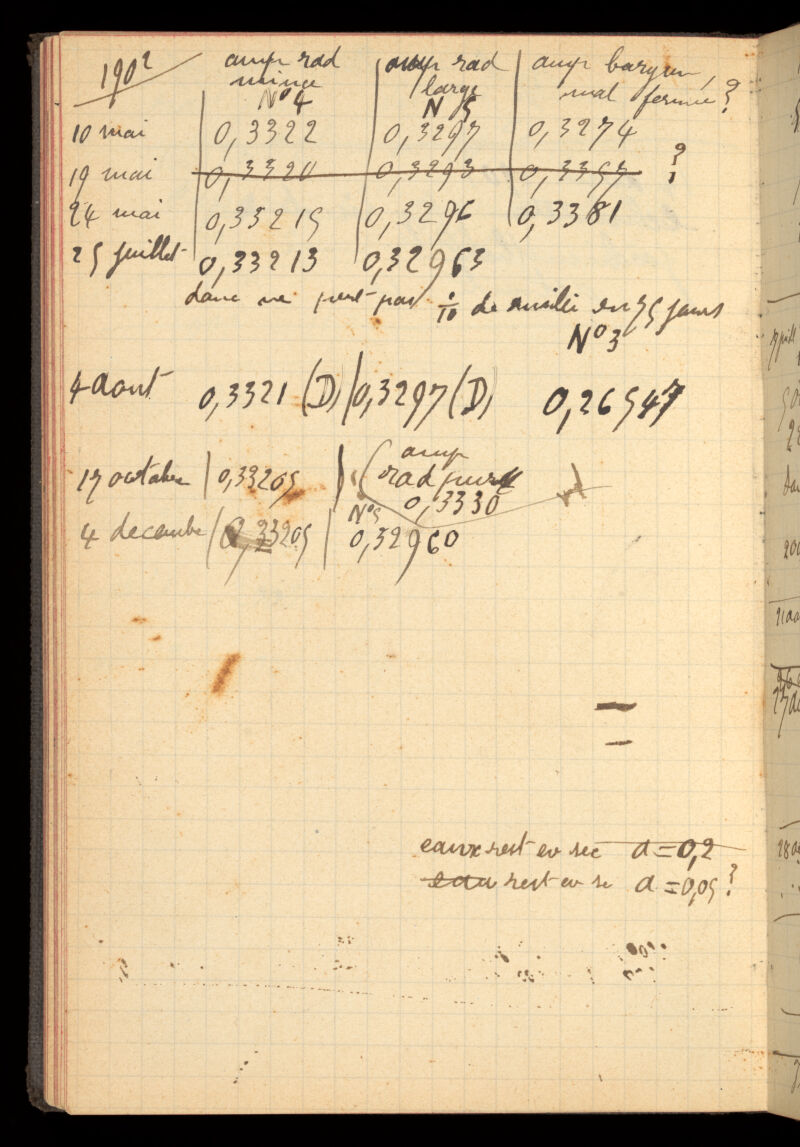 1902 amp rad amp rad amp baryum,
mince large mal fermée ?
N° 4 N 5
10 mai 0,3322 0,3297 0,3274
19 mai 0,3320 0,3293 0,3357 ?
24 mai 0,33215 0,3296 0,3381
25 juillet 0,33213 0,32963
donc ne perd pas 1/10 de milli en 75 jours
N° 3
4 aout 0,3321 (D) 0,3297 (D) 0,26547
amp
17 octobre 0,33205 rad pur
0,3330
N°5
4 decembre 0,33205 0,32960
eaux rest ev sec a = 0,2
eau rest ev se a = 0,05 ?